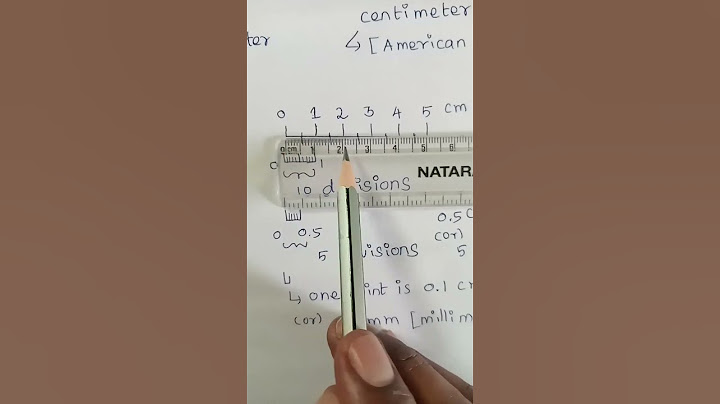 centimeter
ter
↳ [American
0 1 2 3 4 5 cm
0 cm 1 2 3 4 5 6
0 1
NATAR
10 d visions
0.5 c
0 0.5
(or)
5 visions 5
↳ one int is 0.1 c
(or) mm [millim